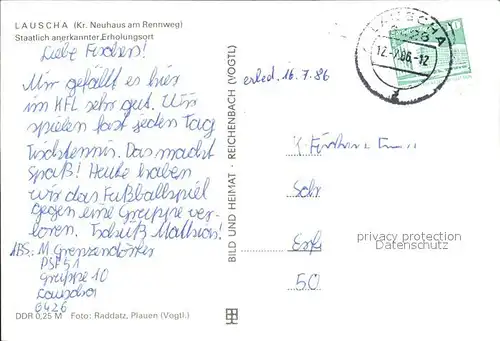 LAUSCHA (Kr. Neuhaus am Rennweg)
Staatlich anerkannter Erholungsort
Liebe Fischers!
Mir gefällt es hier
im KFL sehr gut. Wir
spielen fast jeden Tag
Tischtennis. Das macht
Spaß! Heute haben
wir das Fußballspiel
gegen eine Gruppe ver-
loren. Tschüß Mathias!
ABS: M. Grenzendörfer
PSF 51
Gruppe 10
Lauscha
6426
DDR 0,25 M Foto: Raddatz, Plauen (Vogtl.)
BILD UND HEIMAT · REICHENBACH (VOGTL)
LAUSCHA
6426
12
erled. 16.7.86
50
privacy protection
Datenschutz